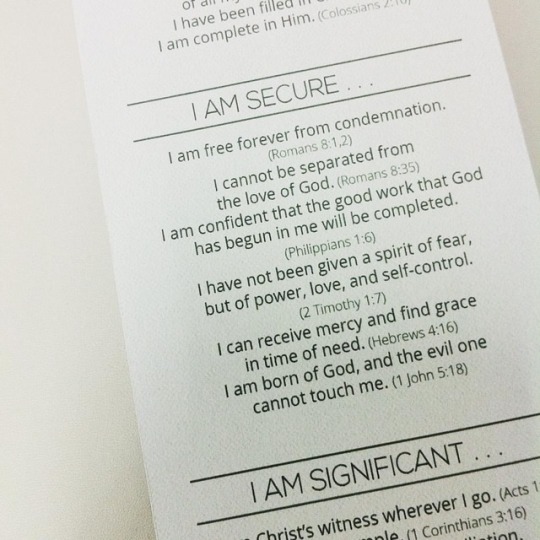 of all my
I have been filled in
I am complete in Him. (Colossians 2:10)
I AM SECURE . . .
I am free forever from condemnation.
(Romans 8:1,2)
I cannot be separated from
the love of God. (Romans 8:35)
I am confident that the good work that God
has begun in me will be completed.
(Philippians 1:6)
I have not been given a spirit of fear,
but of power, love, and self-control.
(2 Timothy 1:7)
I can receive mercy and find grace
in time of need. (Hebrews 4:16)
I am born of God, and the evil one
cannot touch me. (1 John 5:18)
I AM SIGNIFICANT . . .
Christ's witness wherever I go. (Acts 1
(1 Corinthians 3:16)